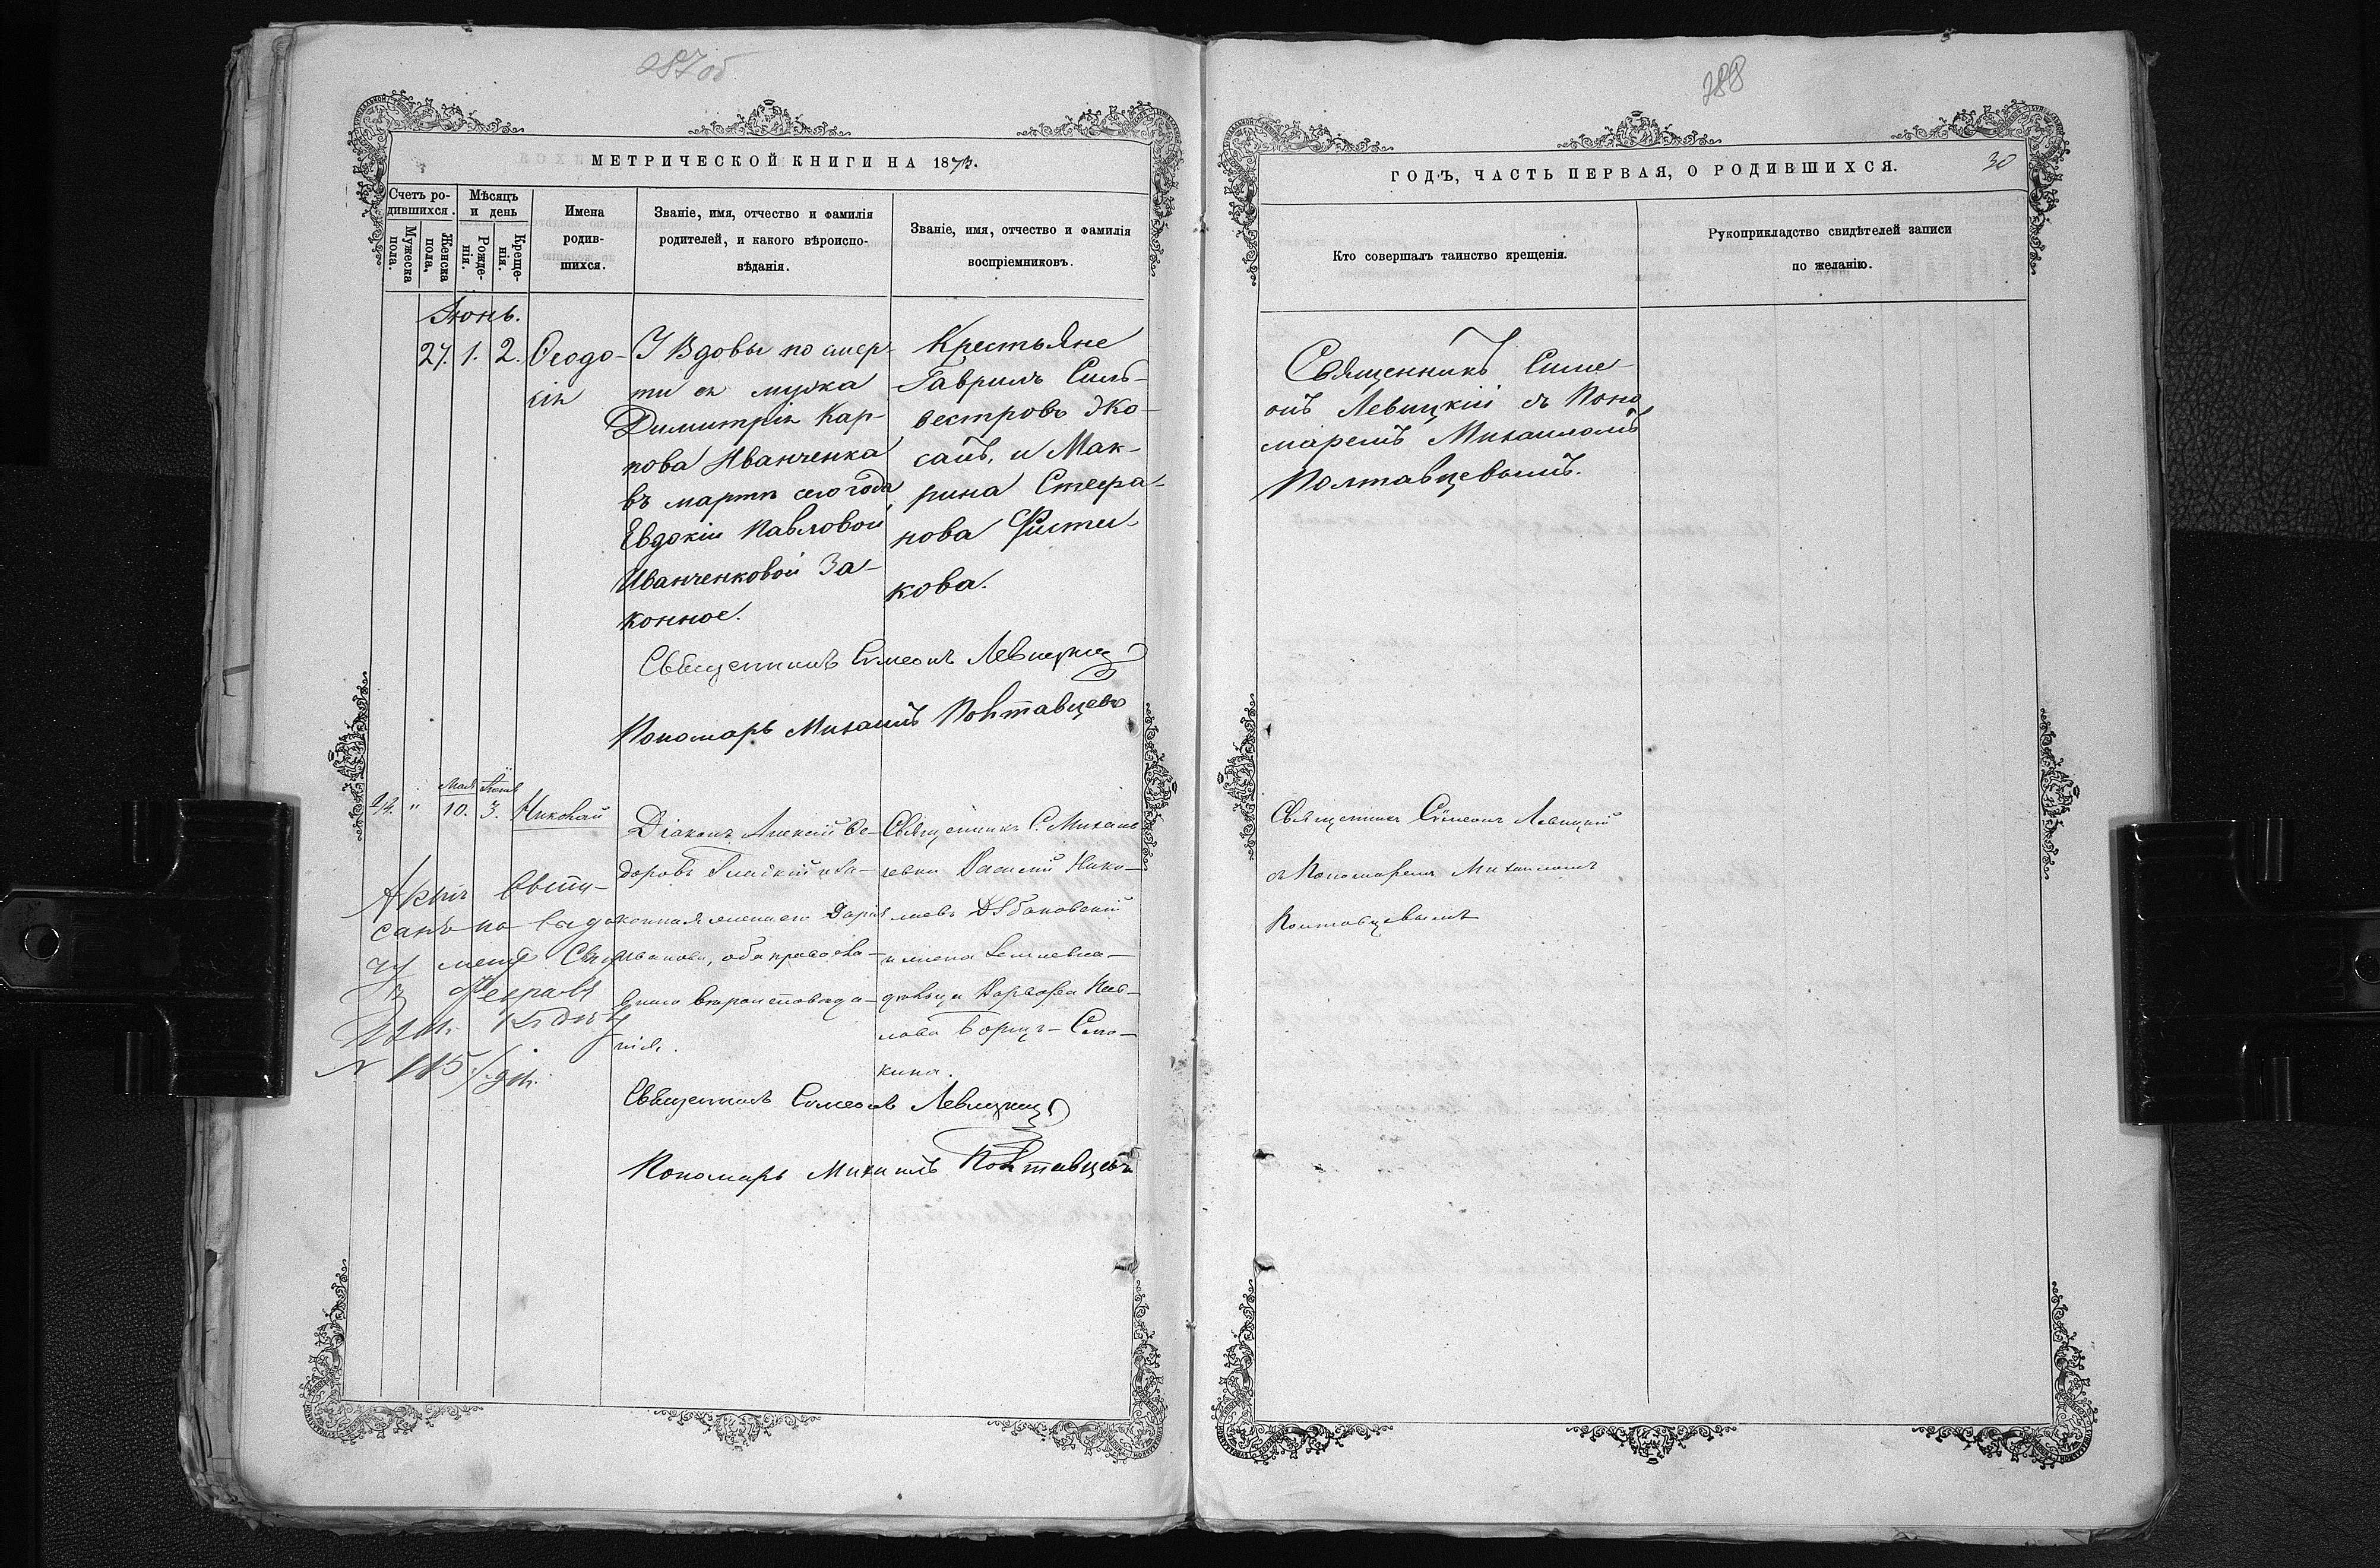 287 об
МЕТРИЧЕСКОЙ КНИГИ НА 1873.
Счетъ ро-
дившихся.
Мужеска
пола.
Женска
пола,
Мѣсяцъ
и день
Рожде-
нія.
Креще-
нія.
Имена
родив-
шихся.
Званіе, имя, отчество и фамилія
родителей, и какого вѣроиспо-
вѣданія.
Званіе, имя, отчество и фамилія
воспріемниковъ.
Іюнь.
27. 1. 2. Ѳеодо-
сія
У Вдовы по смер-
ти ея мужа
Димитрія Кар-
пова Иванченка
въ мартѣ сего года
Евдокіи Павловой
Иванченковой За-
конное.
Крестьяне
Гавриилъ Силь-
вестровъ
и Мак-
рина Стефа-
нова
кова.
Священникъ Симеонъ Левицкій
Пономарь Михаилъ Полтавцевъ
Мая Іюня
24. " 10. 3. Николай
Діаконъ Алексій Ѳе-
доровъ и за-
конная жена его Дарія
Иванова, оба православ-
наго вѣроисповѣда-
нія.
Священникъ С. Михаи-
ловки Василій Нико-
лаевъ
и жена
Варвара Пав-
лова
кина.
Священникъ Симеонъ Левицкій
Пономарь Михаилъ Полтавцевъ
на выда-
чу метр. Свид
Февраля
N 115
288
ГОДЪ, ЧАСТЬ ПЕРВАЯ, О РОДИВШИХСЯ.
30
Кто совершалъ таинство крещенія.
Рукоприкладство свидѣтелей записи
по желанію.
Священникъ Симе-
онъ Левицкій съ Поно
маремъ Михаиломъ
Полтавцевымъ.
Священникъ Симеонъ Левицкій
съ Пономаремъ Михаиломъ
Полтавцевымъ